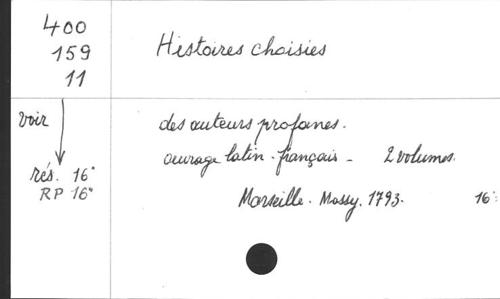 400
159
11
Histoires choisies
voir
rés. 16°
RP 16°
des auteurs profanes.
ouvrage latin-français - 2 volumes.
Marseille. Mossy. 1793. 16°